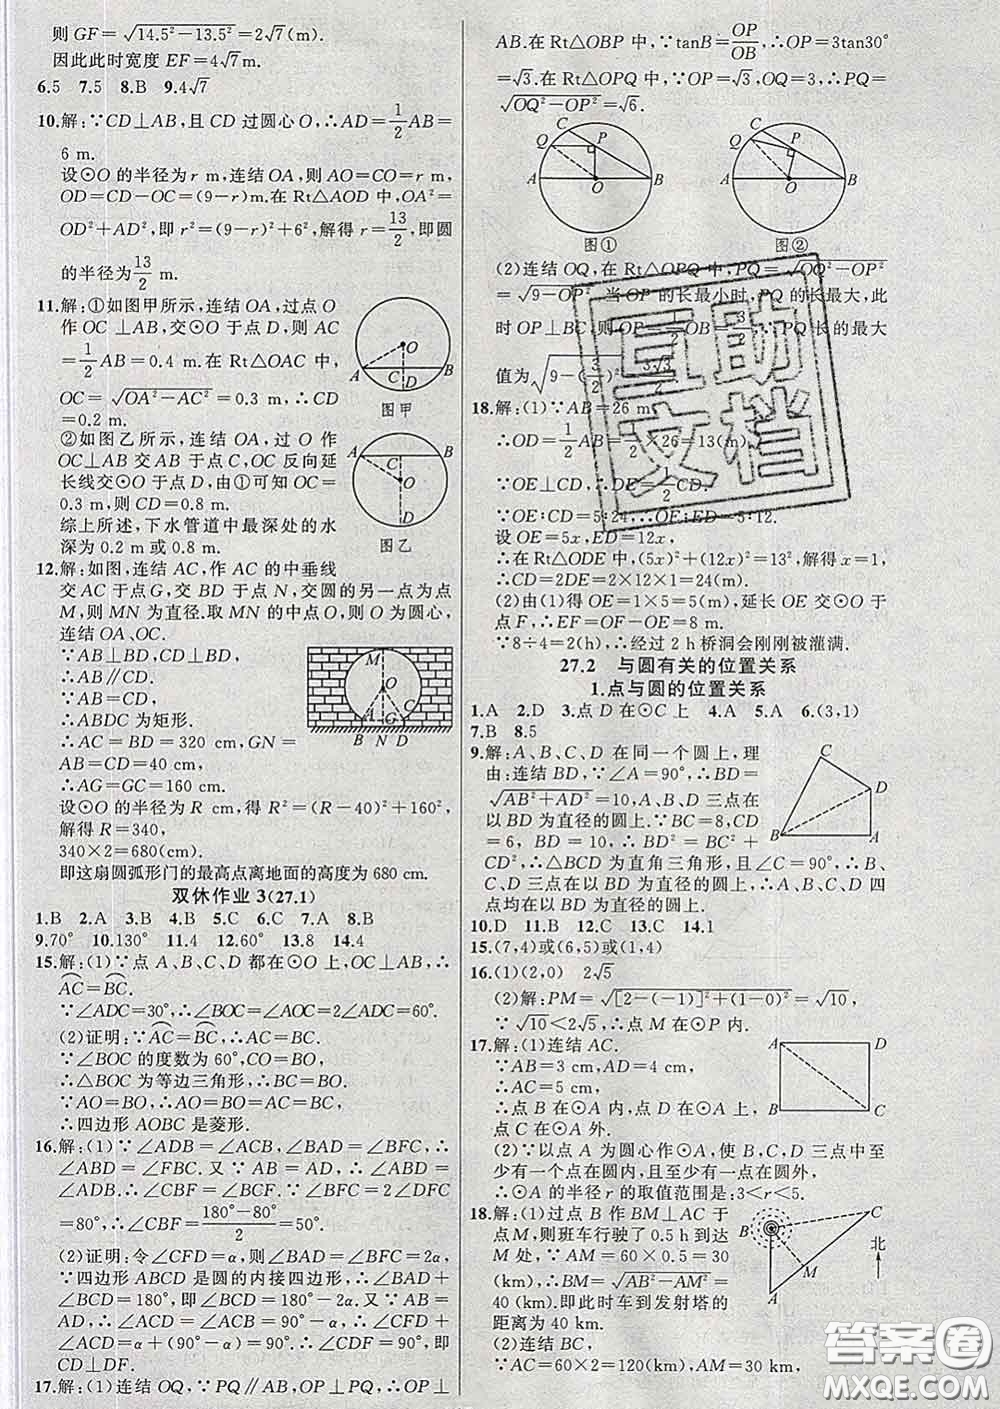 则GF=√(14.5²-13.5²)=2√7(m).
因此此时宽度EF=4√7m.
6.5 7.5 8.B 9.4√7
10.解:∵CD⊥AB,且CD过圆心O,∴AD=1/2AB=
6 m.
设⊙O的半径为r m,连结OA,则AO=CO=r m,
OD=CD-OC=(9-r)m.在Rt△AOD中,OA²=
OD²+AD²,即r²=(9-r)²+6²,解得r=13/2,即圆
的半径为13/2 m.
11.解:①如图甲所示,连结OA,过点O
作OC⊥AB,交⊙O于点D,则AC
=1/2AB=0.4 m.在Rt△OAC中,
OC=√(OA²-AC²)=0.3 m,∴CD
=0.2 m.
②如图乙所示,连结OA,过O作
OC⊥AB交AB于点C,OC反向延
长线交⊙O于点D,由①可知OC=
0.3 m,则CD=0.8 m.
综上所述,下水管道中最深处的水
深为0.2 m或0.8 m.
O
A
B
C
D
图甲
A
B
C
O
D
图乙
12.解:如图,连结AC,作AC的中垂线
交AC于点G,交BD于点N,交圆的另一点为点
M,则MN为直径.取MN的中点O,则O为圆心,
连结OA、OC.
∵AB⊥BD,CD⊥BD,
∴AB∥CD.
∵AB=CD,
∴ABDC为矩形.
∴AC=BD=320 cm,GN=
AB=CD=40 cm,
∴AG=GC=160 cm.
设⊙O的半径为R cm,得R²=(R-40)²+160²,
解得R=340,
340×2=680(cm).
即这扇圆弧形门的最高点离地面的高度为680 cm.
M
O
A
G
C
B N D
双休作业3(27.1)
1.B 2.A 3.B 4.B 5.B 6.C 7.A 8.B
9.70° 10.130° 11.4 12.60° 13.8 14.4
15.解:(1)∵点A、B、C、D都在⊙O上,OC⊥AB,∴
AC=BC.
∵∠ADC=30°,∴∠BOC=∠AOC=2∠ADC=60°.
(2)证明:∵AC=BC,∴AC=BC.
∵∠BOC的度数为60°,CO=BO,
∴△BOC为等边三角形,∴BC=BO.
∵AO=BO,∴AO=BO=AC=BC,
∴四边形AOBC是菱形.
16.解:(1)∵∠ADB=∠ACB,∠BAD=∠BFC,∴
∠ABD=∠FBC.又∵AB=AD,∴∠ABD=
∠ADB,∴∠CBF=∠BCF.∵∠BFC=2∠DFC
=80°,∴∠CBF=(180°-80°)/2=50°.
(2)证明:令∠CFD=α,则∠BAD=∠BFC=2α,
∵四边形ABCD是圆的内接四边形,∴∠BAD+
∠BCD=180°,即∠BCD=180°-2α.又∵AB=
AD,∴∠ACD=∠ACB,∴∠ACB=∠ACD=90°-α,∴∠CFD+
∠ACD=α+(90°-α)=90°,∴∠CDF=90°,即
CD⊥DF.
17.解:(1)连结OQ,∵PQ∥AB,OP⊥PQ,∴OP⊥
AB.在Rt△OBP中,∵tanB=OP/OB,∴OP=3tan30°
=√3.在Rt△OPQ中,∵OP=√3,OQ=3,∴PQ=
√(OQ²-OP²)=√6.
C
Q
P
A
O
B
图①
C
Q
P
A
O
B
图②
(2)连结OQ,在Rt△OPQ中,PQ=√(OQ²-OP²)
=√(9-OP²),当OP的长最小时,PQ的长最大,此
时OP⊥BC,则OP=1/2OB=3/2,∴PQ长的最大
值为√(9-(3/2)²)=3√3/2.
18.解:(1)∵AB=26 m,
∴OD=1/2AB=1/2×26=13(m).
∵OE⊥CD,∴DE=1/2CD.
∵OE:CD=5:24,∴OE:ED=5:12.
设OE=5x,ED=12x,
∴在Rt△ODE中,(5x)²+(12x)²=13²,解得x=1,
∴CD=2DE=2×12×1=24(m).
(2)由(1)得OE=1×5=5(m),延长OE交⊙O于
点F,∴EF=OF-OE=8 m.
∵8÷4=2(h),∴经过2 h桥洞会刚刚被灌满.
27.2 与圆有关的位置关系
1.点与圆的位置关系
1.A 2.D 3.点D在⊙C上 4.A 5.A 6.(3,1)
7.B 8.5
9.解:A、B、C、D在同一个圆上,理
由:连结BD,∵∠A=90°,∴BD=
√(AB²+AD²)=10,A、B、D三点在
以BD为直径的圆上.∵BC=8,CD
=6,BD=10,∴BD²=BC²+
CD²,∴△BCD为直角三角形,且∠C=90°,∴B、C、
D在以BD为直径的圆上,∴A、B、C、D四
点均在以BD为直径的圆上.
C
D
B
A
10.D 11.B 12.C 13.C 14.1
15.(7,4)或(6,5)或(1,4)
16.(1)(2,0) 2√5
(2)解:PM=√([2-(-1)]²+(1-0)²)=√10,
∵√10<2√5,∴点M在⊙P内.
17.解:(1)连结AC.
∵AB=3 cm,AD=4 cm,
∴AC=5 cm,
∴点B在⊙A内,点D在⊙A上,
点C在⊙A外.
(2)∵以点A为圆心作⊙A,使B、C、D三点中至
少有一个点在圆内,且至少有一点在圆外,
∴⊙A的半径r的取值范围是:3<r<5.
A
D
B
C
18.解:(1)过点B作BM⊥AC于
点M,则班车行驶了0.5 h到达
M处,∵AM=60×0.5=30
(km),∴BM=√(AB²-AM²)=
40 (km).即此时车到发射塔的
距离为40 km.
(2)连结BC,
∵AC=60×2=120(km),AM=30 km,
B
C
M
A
北
互助文档
答案圈
MXQE.COM